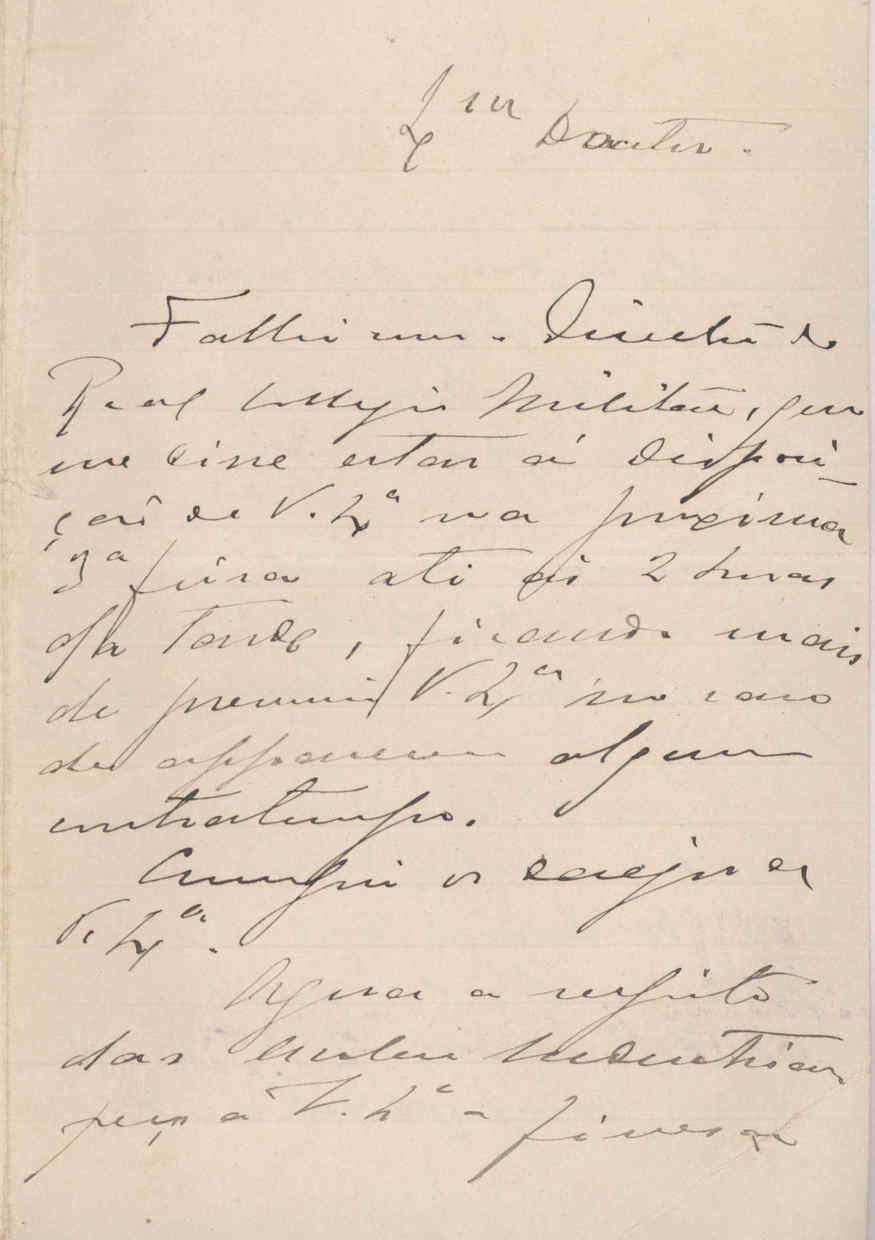 Exmo Doutor.
Fallei com o Director do
Real Collegio Militar, que
me disse estar á disposi-
ção de V. Exª na proxima
3ª feira até ás 2 horas
da tarde, ficando mais
de prevenir V. Exª no caso
de apparecer algum
contratempo.
Cumpri os desejos de
V. Exª.
Agora a respeito
das Escolas Industriaes
peço a V. Exª a fineza